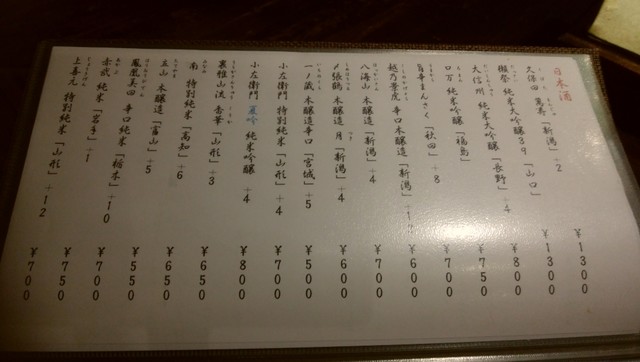 日本酒
久保田 萬寿 「新潟」 +2 ¥1300
獺祭 純米大吟醸39 「山口」 ¥1300
大信州 純米大吟醸 「長野」 +4 ¥800
ロ万 純米吟醸 「福島」 ¥750
まんさく 「秋田」 +8 ¥700
越乃景虎 辛口本醸造 「新潟」 ¥600
八海山 本醸造 「新潟」 +4 ¥700
〆張鶴 本醸造 月 「新潟」 +4 ¥600
一ノ蔵 本醸造辛口 「宮城」 +5 ¥500
小左衛門 特別純米 「山形」 +4 ¥700
小左衛門 夏吟 純米吟醸 +4 ¥800
裏雅山流 香華 「山形」 +3 ¥650
南 特別純米 「高知」 +6 ¥650
立山 本醸造 「富山」 +5 ¥550
鳳凰美田 辛口純米 「栃木」 +10 ¥700
赤武 純米 「岩手」 +1 ¥750
上喜元 特別純米 「山形」 +12 ¥700